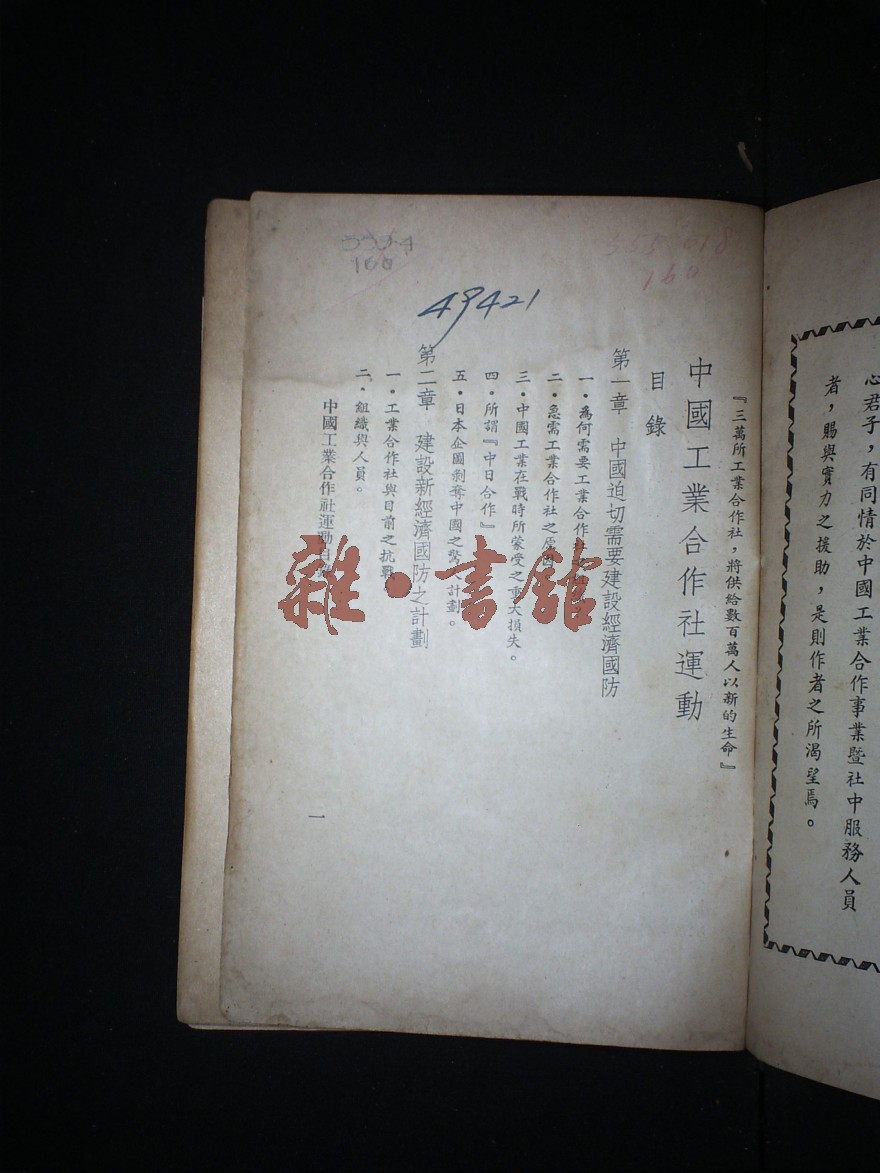 心君子，有同情於中國工業合作事業暨社中服務人員
者，賜與實力之援助，是則作者之所渴望焉。
『三萬所工業合作社，將供給數百萬人以新的生命』
中國工業合作社運動
目錄
第一章 中國迫切需要建設經濟國防
一．為何需要工業合作社
二．急需工業合作社之原因
三．中國工業在戰時所蒙受之重大損失。
四．所謂『中日合作』
五．日本企圖剝奪中國之驚人計劃。
第二章 建設新經濟國防之計劃
一．工業合作社與目前之抗戰
二．組織與人員。
中國工業合作社運動目錄
一
49421
353.4
160
355.618
160
雜·書館